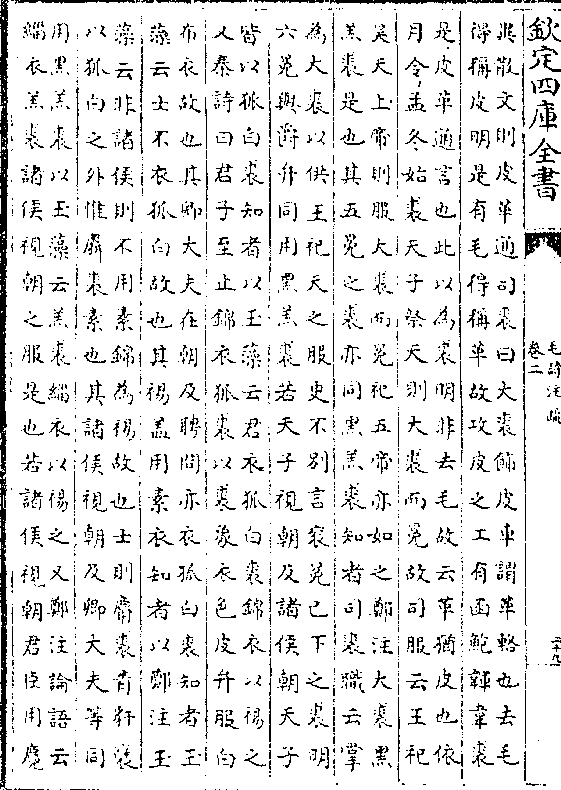 欽定四庫全書
毛詩注疏
卷二
二十九
異散文則皮革通司裘曰大裘飾皮車謂革輅也去毛
得稱皮明是有毛得稱革故攻皮之工有函鮑韗韋裘
是皮革通言也此以為裘明非去毛故云革猶皮也依
月令孟冬始裘天子祭天則大裘而冕故司服云王祀
昊天上帝則服大裘而冕祀五帝亦如之鄭注大裘黑
羔裘是也其五冕之裘亦同黑羔裘知者司裘職云掌
為大裘以供王祀天之服更不別言衮冕已下之裘明
六冕與爵弁同用黑羔裘若天子視朝及諸侯朝天子
皆以狐白裘知者以玉藻云君衣狐白裘錦衣以裼之
又秦詩曰君子至止錦衣狐裘以裘象衣色皮弁服白
布衣故也其卿大夫在朝及聘問亦衣狐白裘知者玉
藻云士不衣狐白故也其裼蓋用素衣知者以鄭注玉
藻云非諸侯則不用素錦為裼故也士則麛裘青豻褎
以狐白之外惟麛裘素也其諸侯視朝及卿大夫等同
用黑羔裘以玉藻云羔裘緇衣以裼之又鄭注論語云
緇衣羔裘諸侯視朝之服是也若諸侯視朝君臣用麛